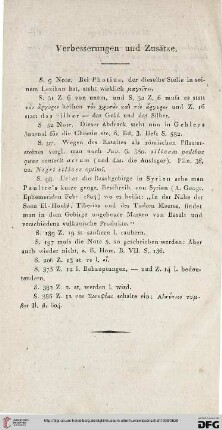 Verbesserungen und Zusätze.
S. 9 Note. Bei Photius, der dieselbe Stelle in sei-
nem Lexikon hat, steht wirklich
S. 31 Z. 6 von unten, und S. 32 Z. 6 muſs es statt
heiſsen und Z. 16
statt das Silber — das Gold und das Silber.
S. 34 Note. Dieser Abdruck steht nun in Gehlers
Journal für die Chemie etc. 6. Bd. 3. Heft S. 382.
S. 37. Wegen des Basaltes als römischen Pflaster-
steines vergl. man noch Juv. 6. 350 silicem pedibus
quae conterit atrum (und das. die Ausleger). Plin. 36,
Nigri silices optimi.
S. 98. Ueber die Basaltgebirge in Syrien sehe man
Paultre's kurze geogr. Beschreib. von Syrien (A. Geogr.
Ephemeriden Febr. 1804) wo es heiſst: „In der Nähe der
Seen El-Houlé, Tiberias und des Todten Meeres, findet
man in dem Gebirge ungeheure Massen von Basalt und
verschiedene vulkanische Produkte."
S. 186 Z. 19 st. saufern l. saubern.
S. 197 muſs die Note 2. so geschrieben werden: Aber
auch wieder nicht, s. S. Hom. B. VII. S. 136.
S. 206 Z. 13 st. es l. er.
S. 373 Z. 12 l. Behauptungen, — und Z. 14 l. beson-
dern.
S. 392 Z. 2 st. werden l. wird.
S. 395 Z. 12 vor schalte ein:
Il. 604.